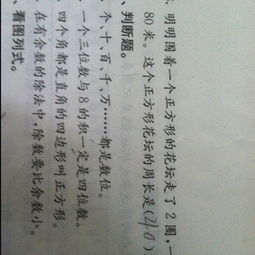 明明围着一个正方形的花坛走了2圈,一
80米。这个正方形花坛的周长是(40)
、判断题。
个、十、百、千、万……都是数位。
一个三位数与8的积一定是四位数。
四个角都是直角的四边形叫正方形。
在有余数的除法中,除数要比余数小。
、看图列式。